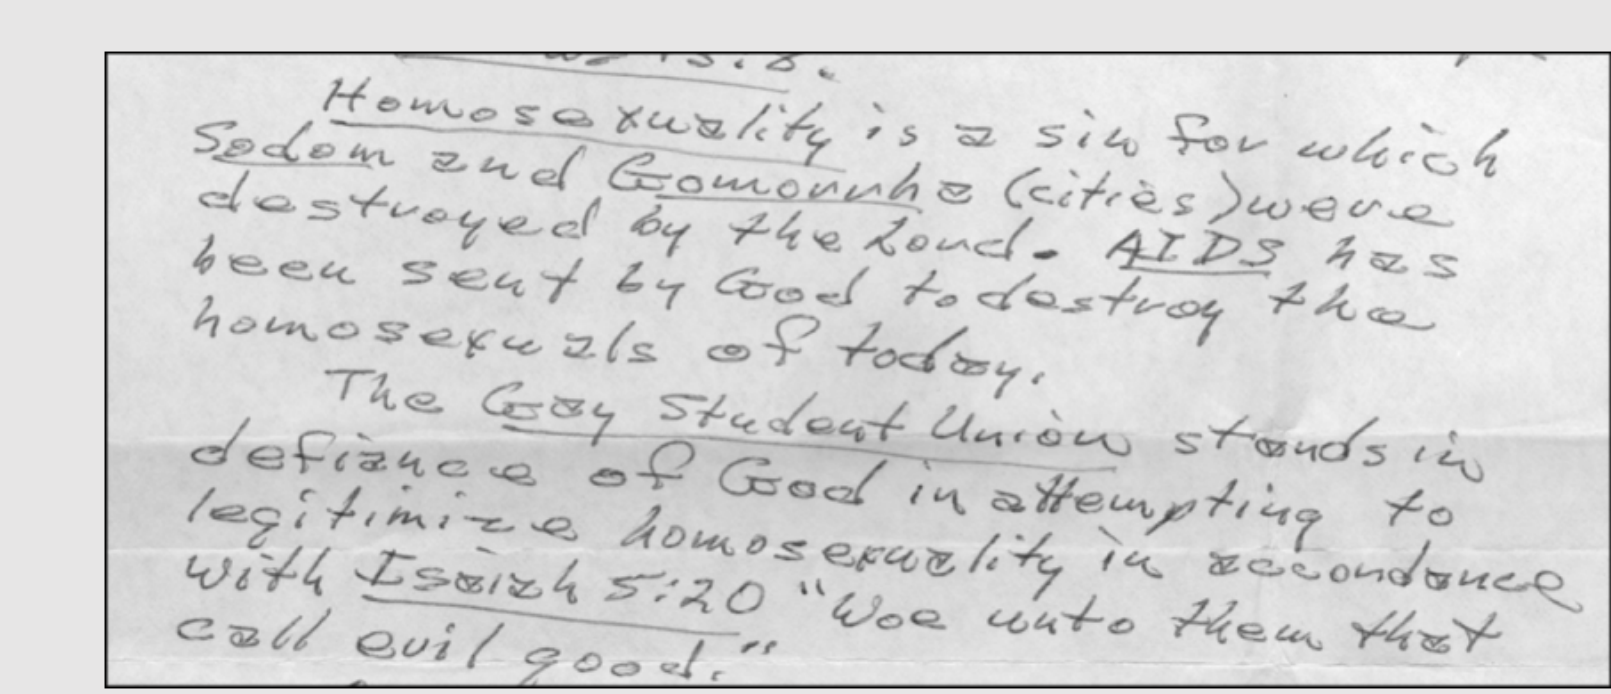 Homosexuality is a sin for which
Sodom and Gomorrha (cities) were
destroyed by the Lord. AIDS has
been sent by God to destroy the
homosexuals of today.
The Gay Student Union stands in
defiance of God in attempting to
legitimize homosexuality in accordance
with Isaiah 5:20 "Woe unto them that
call evil good."